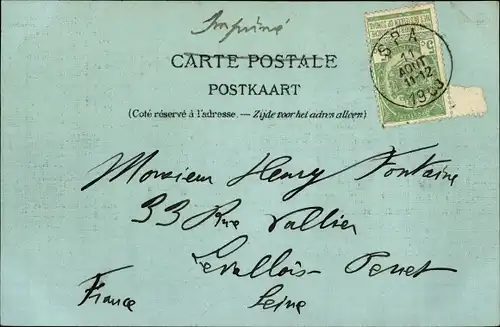 Imprimé
CARTE POSTALE
POSTKAART
(Coté réservé à l'adresse. — Zijde voor het adres alleen)
SPA
11
AOUT
11-12
1903
Monsieur Henry Fontaine
33 Rue Vallier
Levallois-Perret
France Seine